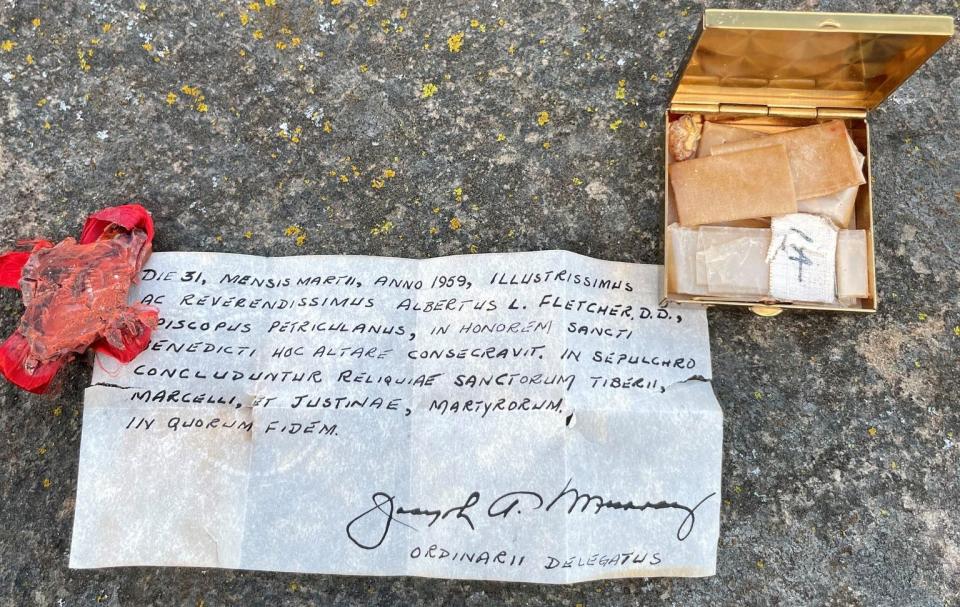 DIE 31, MENSIS MARTII, ANNO 1959, ILLUSTRISSIMUS
AC REVERENDISSIMUS ALBERTUS L. FLETCHER, D.D.,
EPISCOPUS PETRICULANUS, IN HONOREM SANCTI
BENEDICTI HOC ALTARE CONSECRAVIT. IN SEPULCHRO
CONCLUDUNTUR RELIQUIAE SANCTORUM TIBERII,
MARCELLI, ET JUSTINAE, MARTYRORUM.
IN QUORUM FIDEM.
Joseph A. Murray
ORDINARII DELEGATUS